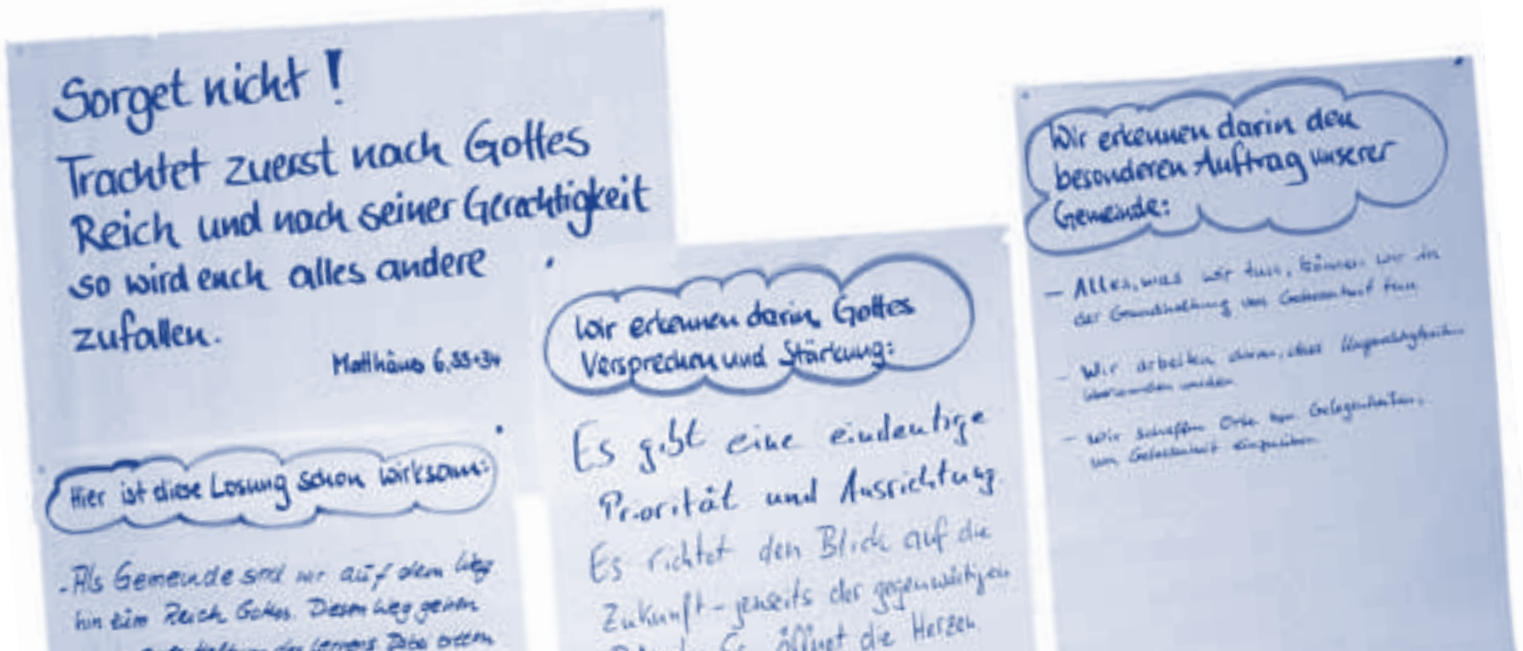 Sorget nicht!
Trachtet zuerst nach Gottes
Reich und nach seiner Gerechtigkeit
so wird euch alles andere
zufallen.
Matthäus 6,33+34
Hier ist diese Losung schon wirksam:
- Als Gemeinde sind wir auf dem Weg
hin zum Reich Gottes. Diesen Weg gehen
des Lernens. Dabei
Wir erkennen darin Gottes
Versprechen und Stärkung:
Es gibt eine eindeutige
Priorität und Ausrichtung.
Es richtet den Blick auf die
Zukunft - jenseits der gegenwärtigen
Es öffnet die Herzen
Wir erkennen darin den
besonderen Auftrag unserer
Gemeinde:
- Alles, was wir tun, können wir in
der Grundhaltung von Gelassenheit tun
- Wir arbeiten daran, dass
überwunden werden
- Wir schaffen Orte Gelegenheiten,
um Gelassenheit